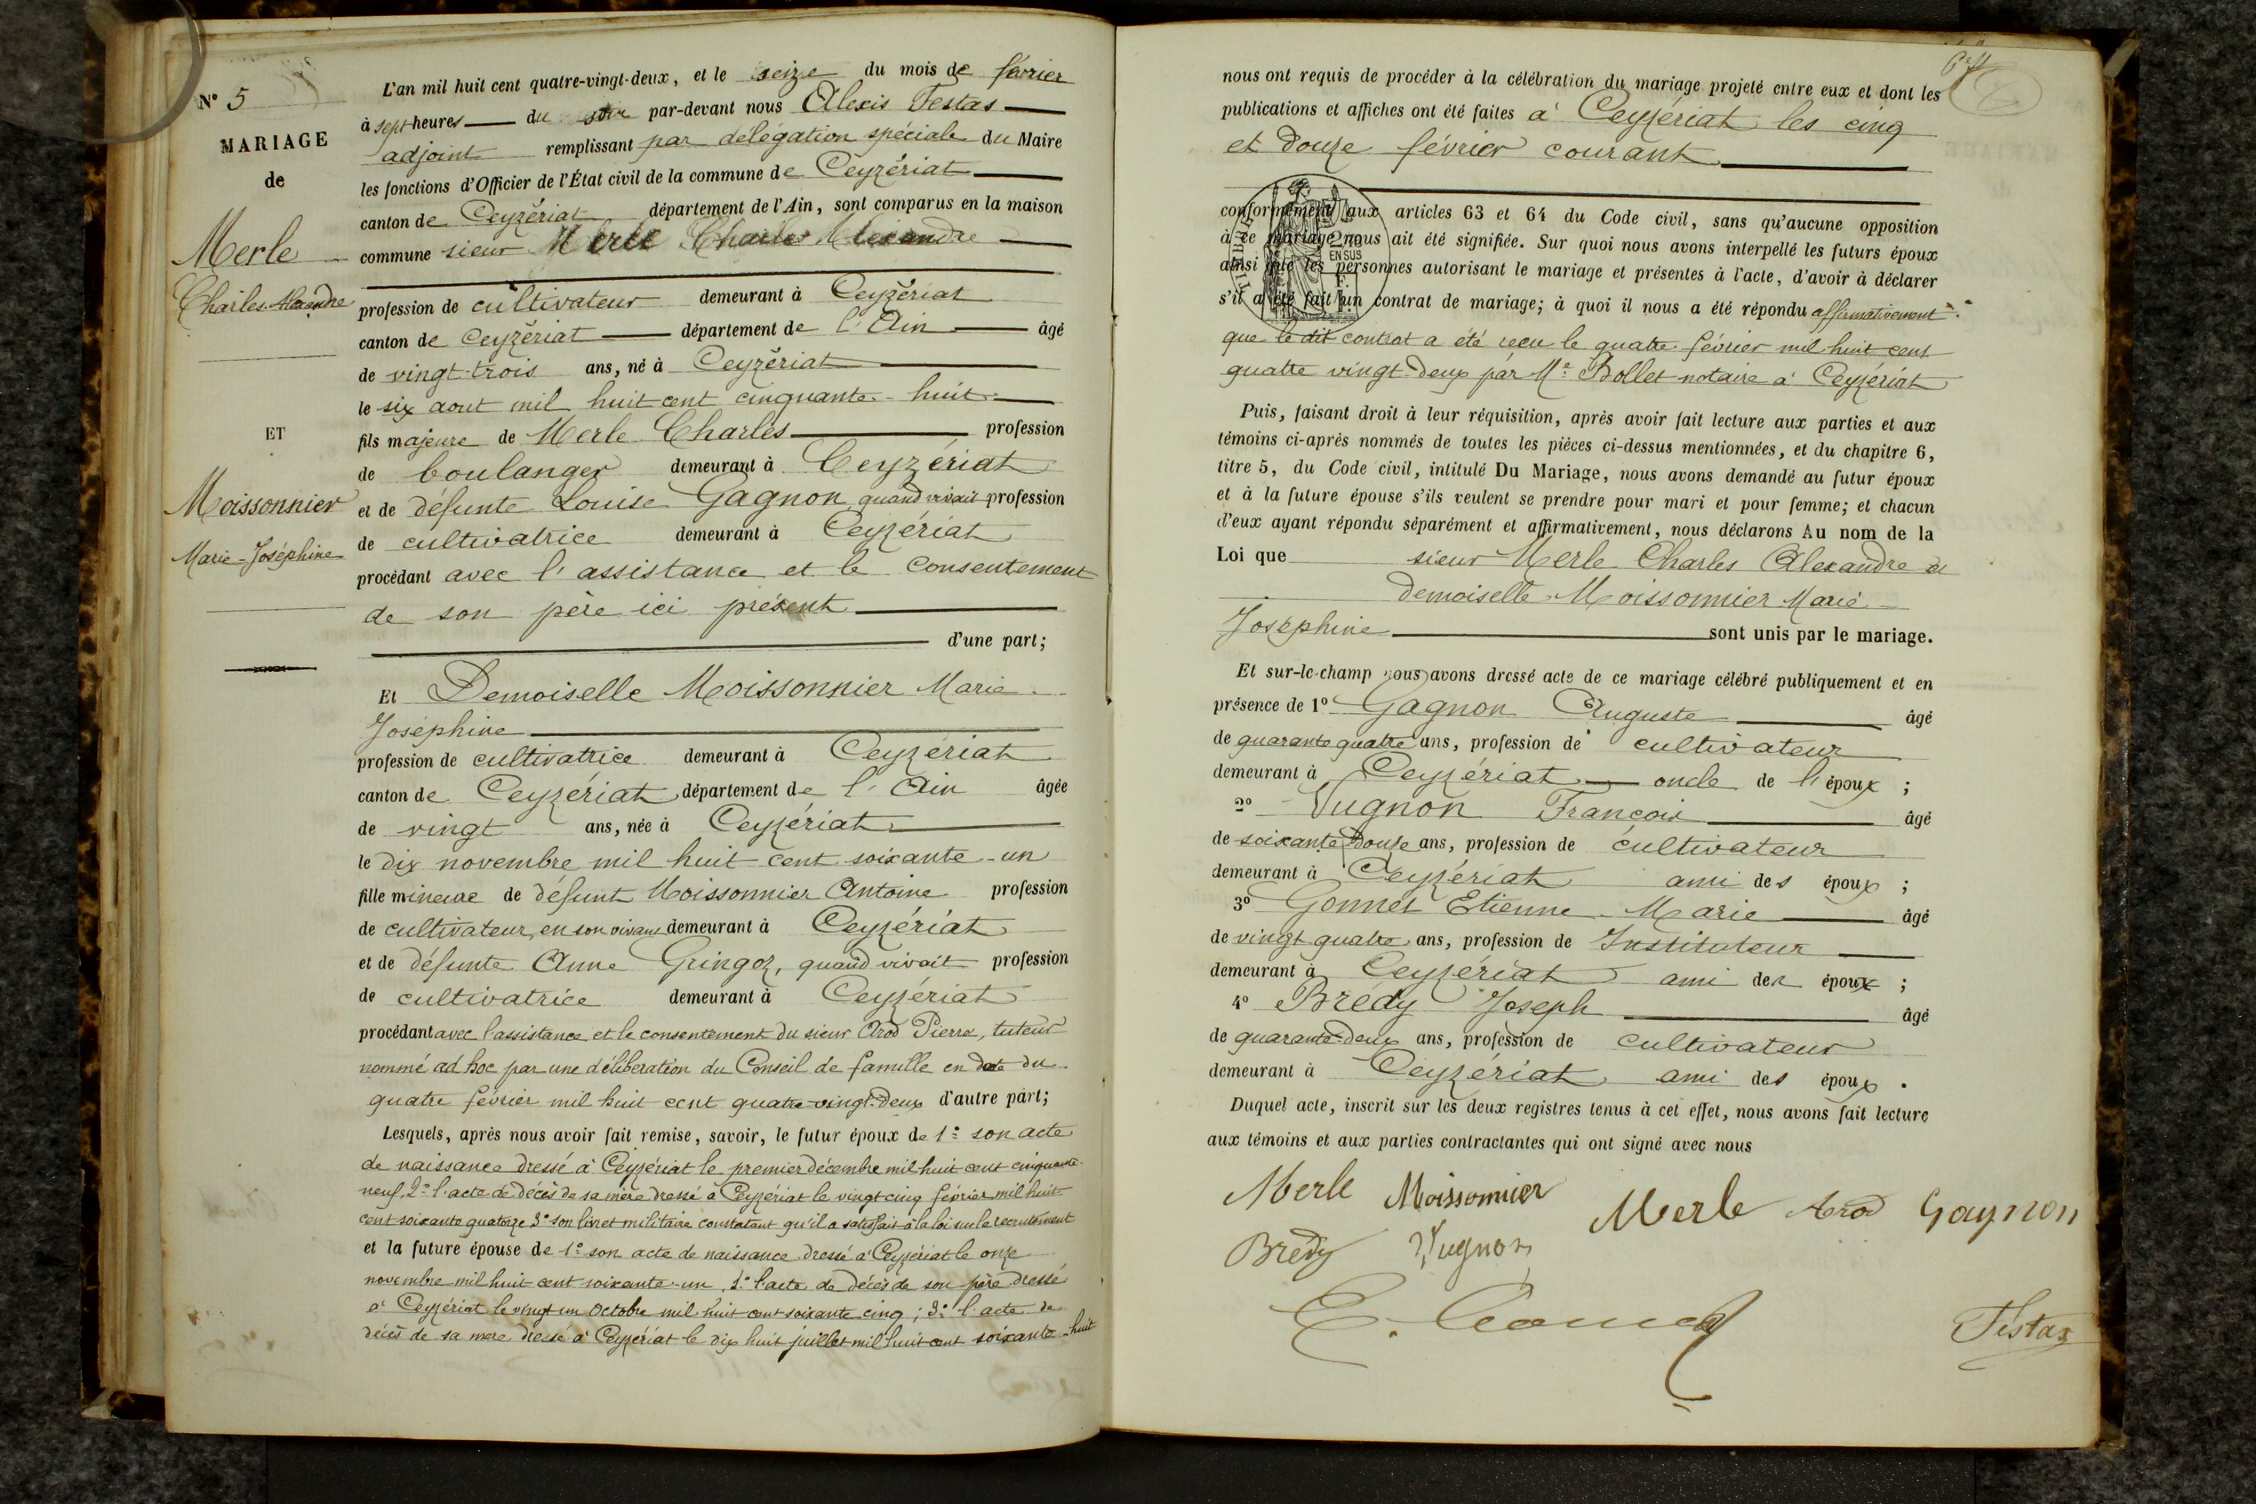 N° 5
MARIAGE
de
Merle
Charles Alexandre
ET
Moissonnier
Marie-Joséphine
L'an mil huit cent quatre-vingt-deux, et le seize du mois de février
à sept heures du soir par-devant nous Alexis Testas
adjoint remplissant par délégation spéciale du Maire
les fonctions d'Officier de l'État civil de la commune de Ceyzériat
canton de Ceyzériat département de l'Ain, sont comparus en la maison
commune sieur Merle Charles Alexandre
profession de cultivateur demeurant à Ceyzériat
canton de Ceyzériat département de l'Ain âgé
de vingt-trois ans, né à Ceyzériat
le six aout mil huit cent cinquante-huit
fils majeure de Merle Charles profession
de boulanger demeurant à Ceyzériat
et de défunte Louise Gagnon, quand vivait profession
de cultivatrice demeurant à Ceyzériat
procédant avec l'assistance et le consentement
de son père ici présent
d'une part;
Et Demoiselle Moissonnier Marie
Joséphine
profession de cultivatrice demeurant à Ceyzériat
canton de Ceyzériat département de l'Ain âgée
de vingt ans, née à Ceyzériat
le dix novembre mil huit cent soixante-un
fille mineure de défunt Moissonnier Antoine profession
de cultivateur, en son vivant demeurant à Ceyzériat
et de défunte Anne Gringoz, quand vivait profession
de cultivatrice demeurant à Ceyzériat
procédant avec l'assistance et le consentement du sieur Arod Pierre, tuteur
nommé ad hoc par une délibération du Conseil de famille en date du
quatre février mil huit cent quatre-vingt-deux d'autre part;
Lesquels, après nous avoir fait remise, savoir, le futur époux de 1° son acte
de naissance dressé à Ceyzériat le premier décembre mil huit cent cinquante-
neuf, 2° l'acte de décès de sa mère dressé à Ceyzériat le vingt cinq février mil huit
cent soixante quatorze 3° son livret militaire constatant qu'il a satisfait à la loi sur le recrutement
et la future épouse de 1° son acte de naissance dressé à Ceyzériat le onze
novembre mil huit cent soixante-un, 2° l'acte de décès de son père dressé
à Ceyzériat le vingt un Octobre mil huit cent soixante cinq; 3° l'acte de
décès de sa mère dressé à Ceyzériat le dix huit juillet mil huit cent soixante-huit
nous ont requis de procéder à la célébration du mariage projeté entre eux et dont les
publications et affiches ont été faites à Ceyzériat les cinq
et douze février courant
conformément aux articles 63 et 64 du Code civil, sans qu'aucune opposition
à ce mariage nous ait été signifiée. Sur quoi nous avons interpellé les futurs époux
ainsi que les personnes autorisant le mariage et présentes à l'acte, d'avoir à déclarer
s'il a été fait un contrat de mariage; à quoi il nous a été répondu affirmativement
que le dit contrat a été reçu le quatre février mil huit cent
quatre vingt-deux par Me Bollet notaire à Ceyzériat
Puis, faisant droit à leur réquisition, après avoir fait lecture aux parties et aux
témoins ci-après nommés de toutes les pièces ci-dessus mentionnées, et du chapitre 6,
titre 5, du Code civil, intitulé Du Mariage, nous avons demandé au futur époux
et à la future épouse s'ils veulent se prendre pour mari et pour femme; et chacun
d'eux ayant répondu séparément et affirmativement, nous déclarons Au nom de la
Loi que sieur Merle Charles Alexandre et
demoiselle Moissonnier Marie
Joséphine sont unis par le mariage.
Et sur-le-champ nous avons dressé acte de ce mariage célébré publiquement et en
présence de 1° Gagnon Auguste âgé
de quarante quatre ans, profession de cultivateur
demeurant à Ceyzériat oncle de l'époux ;
2° Vugnon François âgé
de soixante douze ans, profession de cultivateur
demeurant à Ceyzériat ami des époux ;
3° Gonnet Etienne-Marie âgé
de vingt quatre ans, profession de Instituteur
demeurant à Ceyzériat ami des époux ;
4° Brédy Joseph âgé
de quarante-deux ans, profession de cultivateur
demeurant à Ceyzériat ami des époux.
Duquel acte, inscrit sur les deux registres tenus à cet effet, nous avons fait lecture
aux témoins et aux parties contractantes qui ont signé avec nous
Merle Moissonnier Merle Arod Gagnon
Brédy Vugnon
Testas